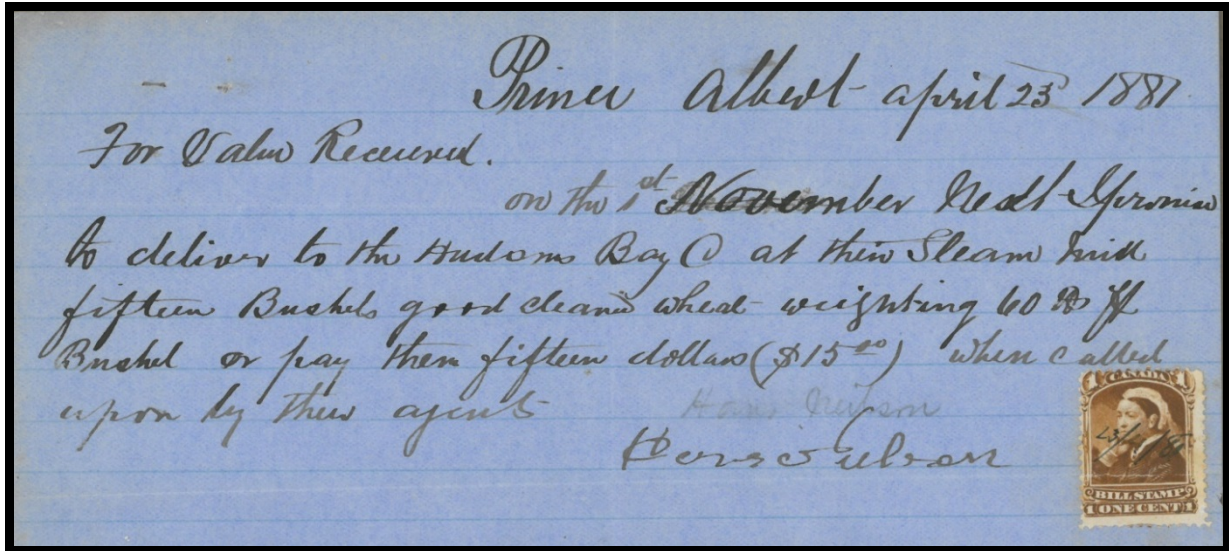 Prince Albert april 23 1881
For Value Received.
on the 1st November Next I promise
to deliver to the Hudsons Bay C at their Steam Mill
fifteen Bushels good cleand wheat weighting 60 lbs
Bushel or pay them fifteen dollars ($15.00) when called
upon by their agents
CANADA
BILL STAMP
1 ONE CENT 1